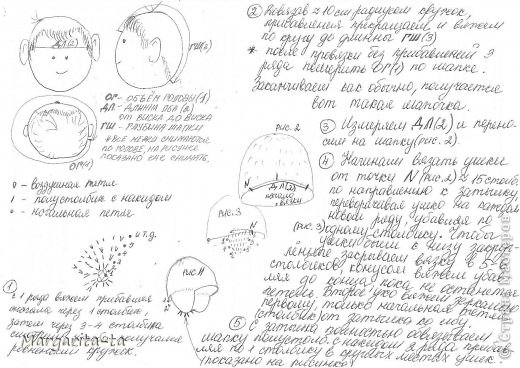 ДЛ(2)
ГШ(3)
ОГ - ОБЪЁМ ГОЛОВЫ (1)
ДЛ - ДЛИННА ЛБА (2)
ОТ ВИСКА ДО ВИСКА
ГШ - ГЛУБИНА ШАПКИ
* ВСЕ МЕРКИ СНИМАЮТСЯ
ПО ГОЛОВЕ, НА РИСУНКЕ
ПОКАЗАНО КАК СНИМАТЬ.
ОГ(1)
0 - воздушная петля
| - полустолбик с накидом
• - начальная петля
и т.д.
①
с 1 ряда вяжем прибавляя
сначала через 1 столбик,
затем через 3-4 столбика
ровненький кружок.
Margarita-ta
② Провязав ≈ 10см радиусом кружок,
прибавления прекращаем и вяжем
по кругу до длинны ГШ(3)
* после провязки без прибавлений 3
ряда померить ОГ(1) по шапке.
Заканчиваем как обычно, получается
вот такая шапочка.
РИС. 2
N
ДЛ(2)
начало
вязки
③ Измеряем ДЛ(2) и перено-
сим на шапку(рис.2).
④ Начинаем вязать ушки
от точки N (рис.2) ≈ 15 столб.
по направлению к затылку,
переворачивая ушко на каждом
новом ряду, убавляя по
(рис.3) одному столбику. Чтобы
ушки были с низу закруг-
лённые закрываем вязку в 5-6
столбиков, конусом вяжем убав-
ляя до конца пока не останется
петель. Второе ухо вяжем зеркально
первому, только начальная петля
(столбик) от затылка ко лбу.
РИС. 3
N
РИС. 4
⑤ С затылка полностью обвязываем
шапку полустолб. с накидом 2 ряда прибав-
ляя по 1 столбику в круглых местах ушек
(показано на рисунке)